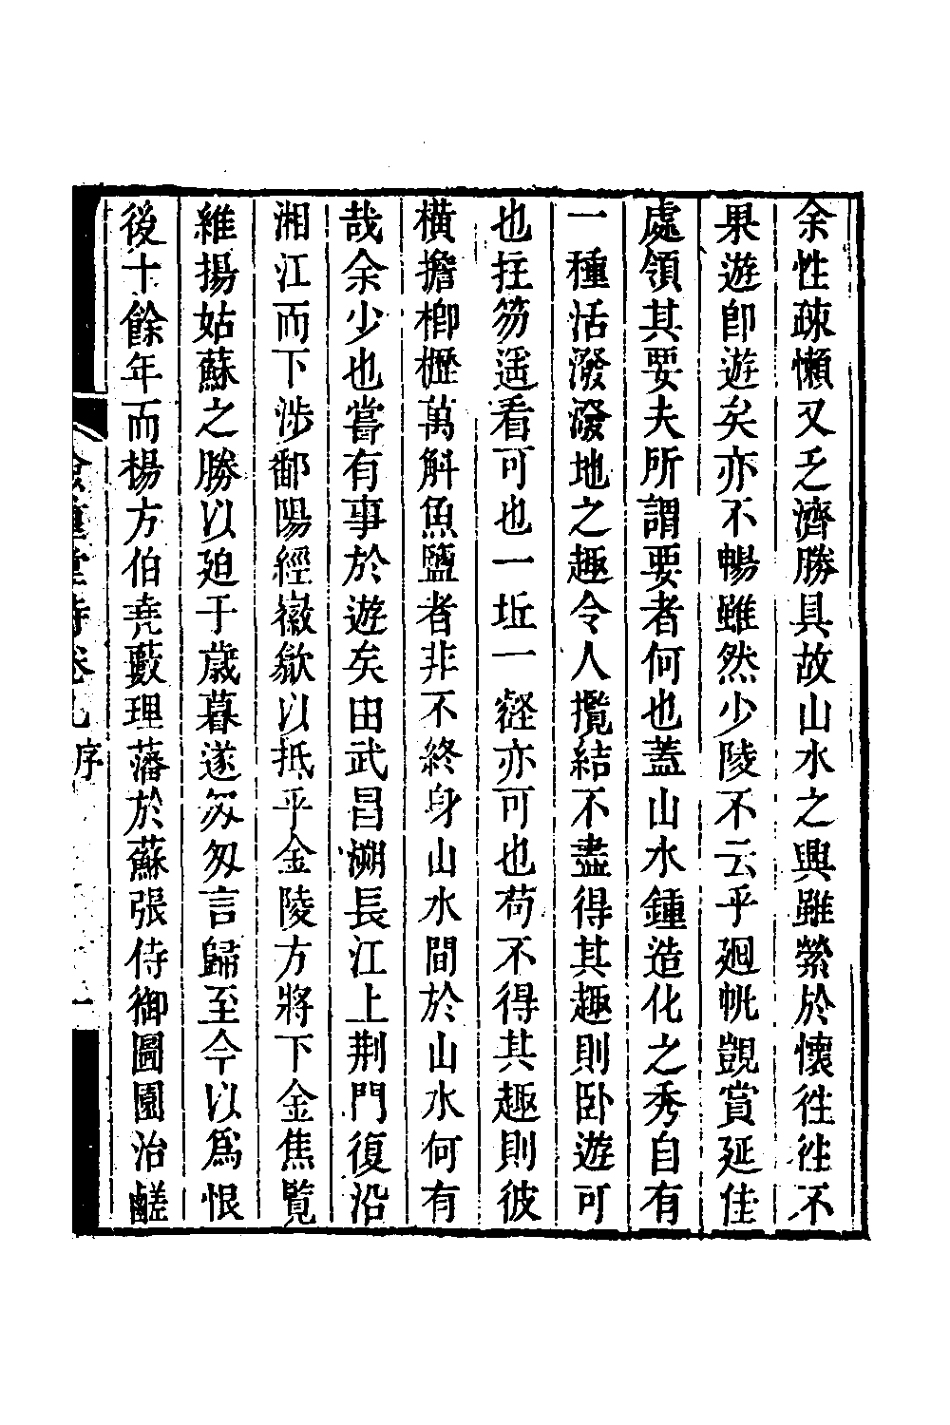 余性疎懶又乏濟勝具故山水之興雖縈於懷徃徃不
果遊卽遊矣亦不暢雖然少陵不云乎廻帆覬賞延佳
處領其要夫所謂要者何也蓋山水鍾造化之秀自有
一種活潑潑地之趣令人攬結不盡得其趣則卧遊可
也拄笏遥看可也一坵一壑亦可也苟不得其趣則彼
橫擔楖櫪萬斛魚鹽者非不終身山水間於山水何有
哉余少也嘗有事於遊矣由武昌溯長江上荆門復沿
湘江而下涉鄱陽經徽歙以抵乎金陵方將下金焦覧
維揚姑蘇之勝以廹于歲暮遂匆匆言歸至今以爲恨
後十餘年而楊方伯堯藪理藩於蘇張侍御圖園治鹺
堂詩卷 序
一